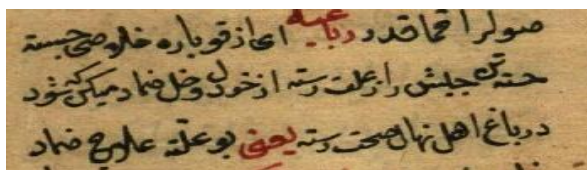 صولر اقماقدر رباعیه ای از قوباره خلاصی جسته
خسته تن را ز علت رسته از خردل و خل ضماد میکن که شود
در باغ اهل نهال صحت رسته یعنی بو علته علاج ضماد